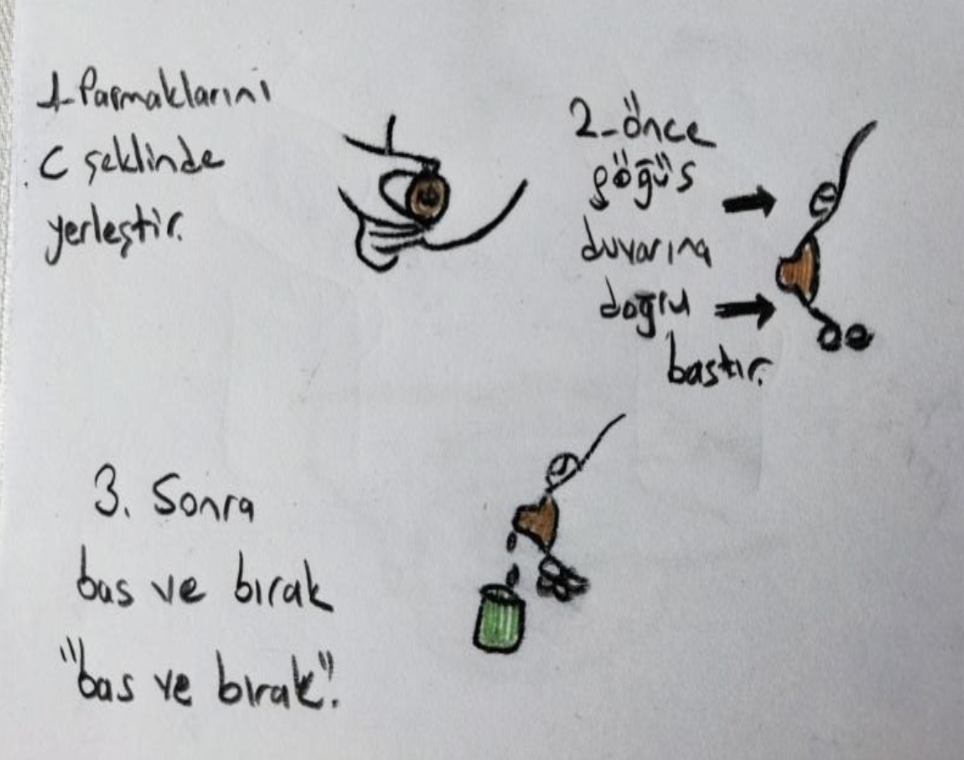 1-Parmaklarını
C şeklinde
yerleştir.
2-önce
göğüs
duvarına
doğru
bastır.
3. Sonra
bas ve bırak
"bas ve bırak".